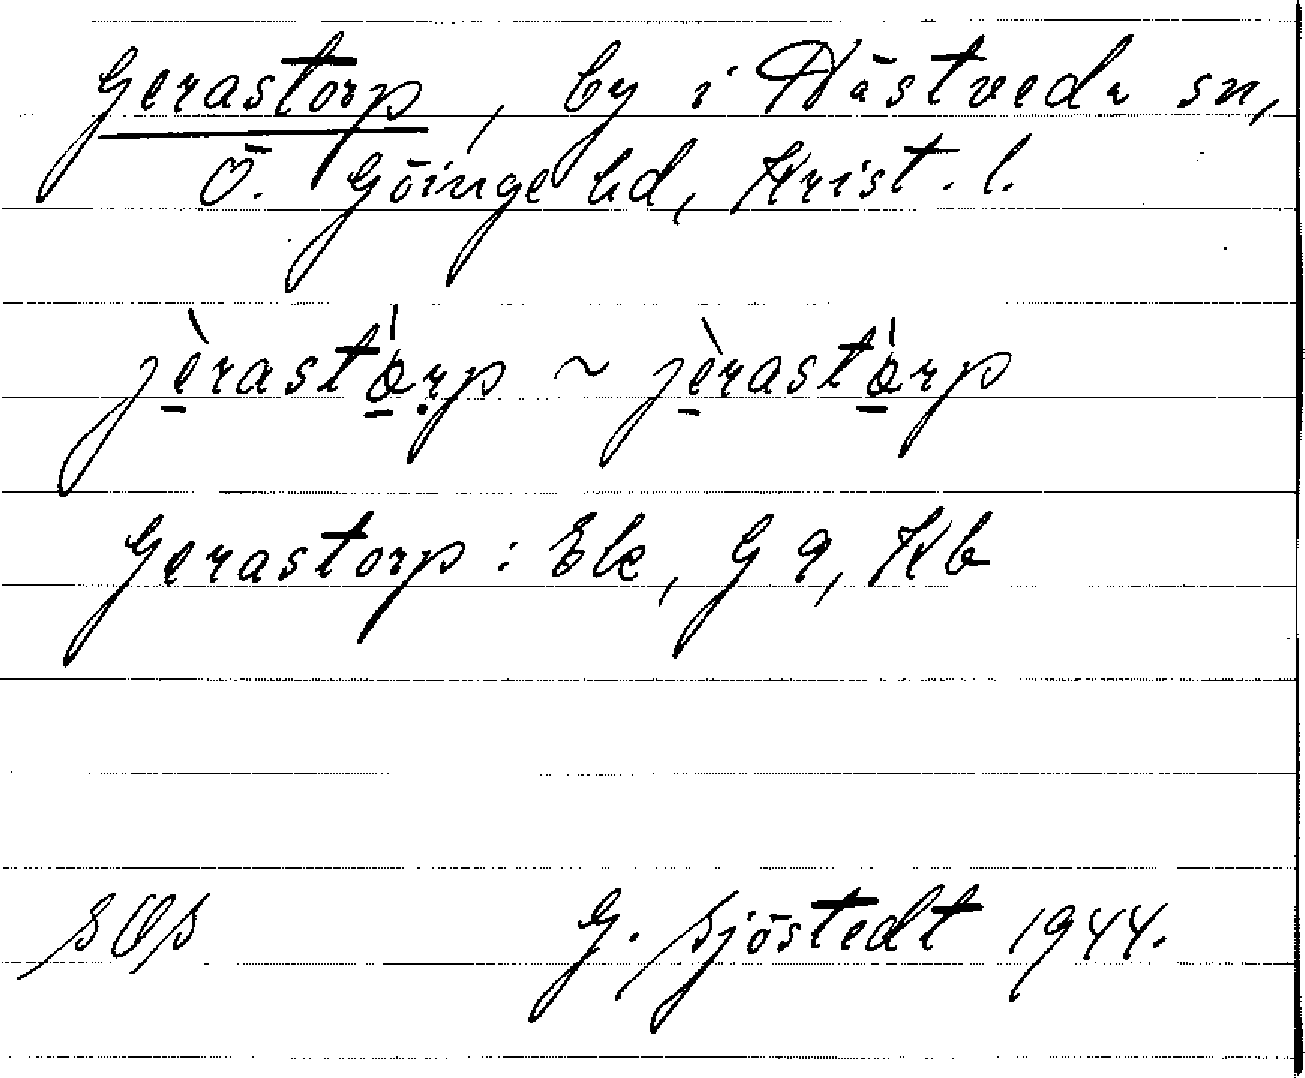 Gerastorp, by i Hästveda sn,
Ö. Göinge hd, Krist. l.
jèrastórp ~ jèrastórp
Gerastorp : Ek, G a, Kb
SOS G. Sjöstedt 1944.